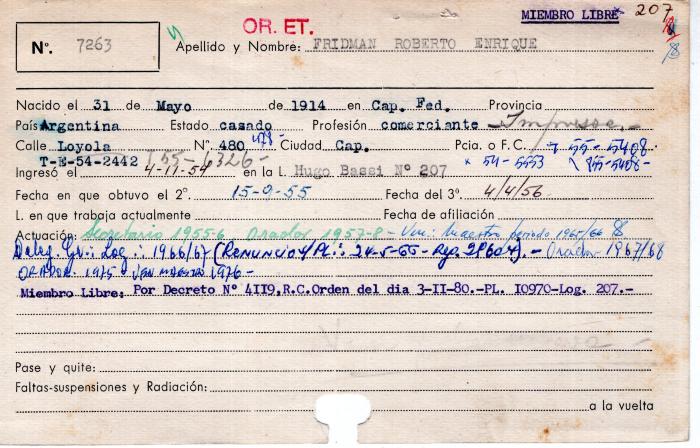 MIEMBRO LIBRE 207
OR. ET.
8
N°. 7263
Apellido y Nombre: FRIDMAN ROBERTO ENRIQUE
Nacido el 31 de Mayo de 1914 en Cap. Fed. Provincia
País Argentina Estado casado Profesión comerciante
Calle Loyola N°. 480 478 Ciudad Cap. Pcia. o F.C. 55-5408
T-E-54-2442 755-6326 54-5553 855-5408
Ingresó el 4-11-54 en la L. Hugo Bassi N° 207
Fecha en que obtuvo el 2°. 15-9-55 Fecha del 3°. 4/4/56
L. en que trabaja actualmente Fecha de afiliación
Actuación: Secretario 1955-6 Orador 1957-8 - Ven: Maestro periodo 1965/66 8
Deleg. Gr:. Log:. 1966/67 (Renunció s/Pl:. 24-5-66 - Rep. 2P604). - Orador 1967/68
ORADOR 1975 VEN MAESTRO 1976 -
Miembro Libre: Por Decreto N° 4119,R.C.Orden del dia 3-II-80.-PL. I0970-Log. 207.-
Pase y quite:
Faltas-suspensiones y Radiación:
a la vuelta